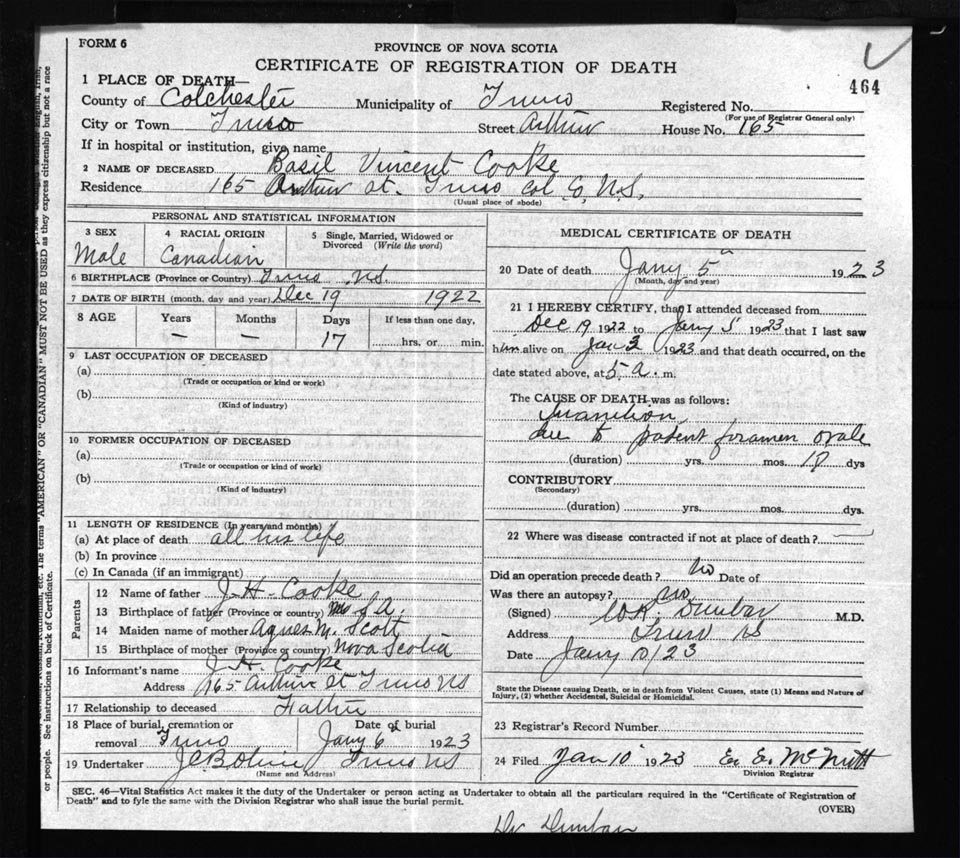 FORM 6
PROVINCE OF NOVA SCOTIA
CERTIFICATE OF REGISTRATION OF DEATH
464
1 PLACE OF DEATH—
County of Colchester Municipality of Truro Registered No.
(For use of Registrar General only)
City or Town Truro Street Arthur House No. 165
If in hospital or institution, give name
2 NAME OF DECEASED Basil Vincent Cooke
Residence 165 Arthur st. Truro Col Co, N.S.
(Usual place of abode)
PERSONAL AND STATISTICAL INFORMATION
3 SEX 4 RACIAL ORIGIN 5 Single, Married, Widowed or Divorced (Write the word)
Male Canadian
6 BIRTHPLACE (Province or Country) Truro N.S.
7 DATE OF BIRTH (month, day and year) Dec 19 1922
8 AGE Years Months Days If less than one day,
— — 17 hrs, or min.
9 LAST OCCUPATION OF DECEASED
(a)
(Trade or occupation or kind or work)
(b)
(Kind of industry)
10 FORMER OCCUPATION OF DECEASED
(a)
(Trade or occupation or kind of work)
(b)
(Kind of industry)
11 LENGTH OF RESIDENCE (In years and months)
(a) At place of death all his life
(b) In province
(c) In Canada (if an immigrant)
Parents
12 Name of father J. H. Cooke
13 Birthplace of father (Province or country)
14 Maiden name of mother Agnes M. Scott
15 Birthplace of mother (Province or country) Nova Scotia
16 Informant's name J. H. Cooke
Address 165 Arthur St Truro NS
17 Relationship to deceased Father
18 Place of burial, cremation or removal Truro Date of burial Jany 6 1923
19 Undertaker Truro NS
(Name and Address)
MEDICAL CERTIFICATE OF DEATH
20 Date of death Jany 5 1923
(Month, day and year)
21 I HEREBY CERTIFY, that I attended deceased from
Dec 19 1922 to Jany 5 1923 that I last saw
him alive on Jan 3 1923 and that death occurred, on the
date stated above, at 5 a. m.
The CAUSE OF DEATH was as follows:
Inanition,
due to patent foramen ovale
(duration) yrs. mos. 18 dys
CONTRIBUTORY
(Secondary)
(duration) yrs. mos. dys.
22 Where was disease contracted if not at place of death?
Did an operation precede death? no Date of
Was there an autopsy? no
(Signed) Dunbar M.D.
Address Truro NS
Date Jany 10/23
State the Disease causing Death, or in death from Violent Causes, state (1) Means and Nature of
Injury, (2) whether Accidental, Suicidal or Homicidal.
23 Registrar's Record Number
24 Filed Jan 10 1923 E. E. McNutt
Division Registrar
SEC. 46—Vital Statistics Act makes it the duty of the Undertaker or person acting as Undertaker to obtain all the particulars required in the "Certificate of Registration of
Death" and to fyle the same with the Division Registrar who shall issue the burial permit.
(OVER)
Dr Dunbar
etc. The terms "AMERICAN" OR "CANADIAN" MUST NOT BE USED as they express citizenship but not a race
or people. See instructions on back of Certificate.